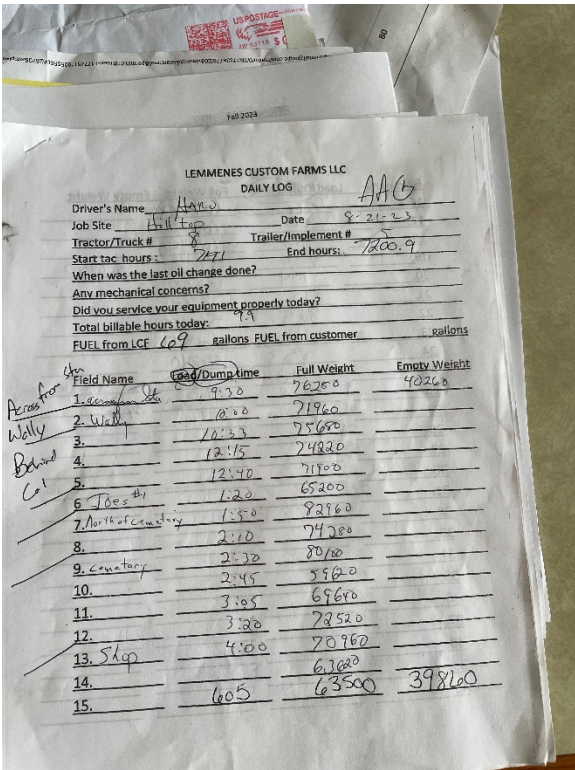 US POSTAGE
Fall 2023
LEMMENES CUSTOM FARMS LLC
DAILY LOG AAG
Driver's Name HARO
Job Site Hill top Date 8-21-23
Tractor/Truck # 8 Trailer/Implement # 5
Start tac hours : End hours: 7200.9
When was the last oil change done?
Any mechanical concerns?
Did you service your equipment properly today?
Total billable hours today: 9.9
FUEL from LCF 609 gallons FUEL from customer gallons
Field Name Load/Dump time Full Weight Empty Weight
Across from
1. 9:30 76280 40260
Wally
2. Wally 10:00 71960
3. 10:33 75680
Behind
4. 12:15 74220
5. 12:40 71900
6 Joes #1 1:20 65200
7. North of cemetary 1:50 82960
8. 2:10 74280
9. cematary 2:30 80100
10. 2:45 59620
11. 3:05 69640
12. 3:20 72520
13. Shop 4:00 70960
14. 63620
15. 605 63500 39860